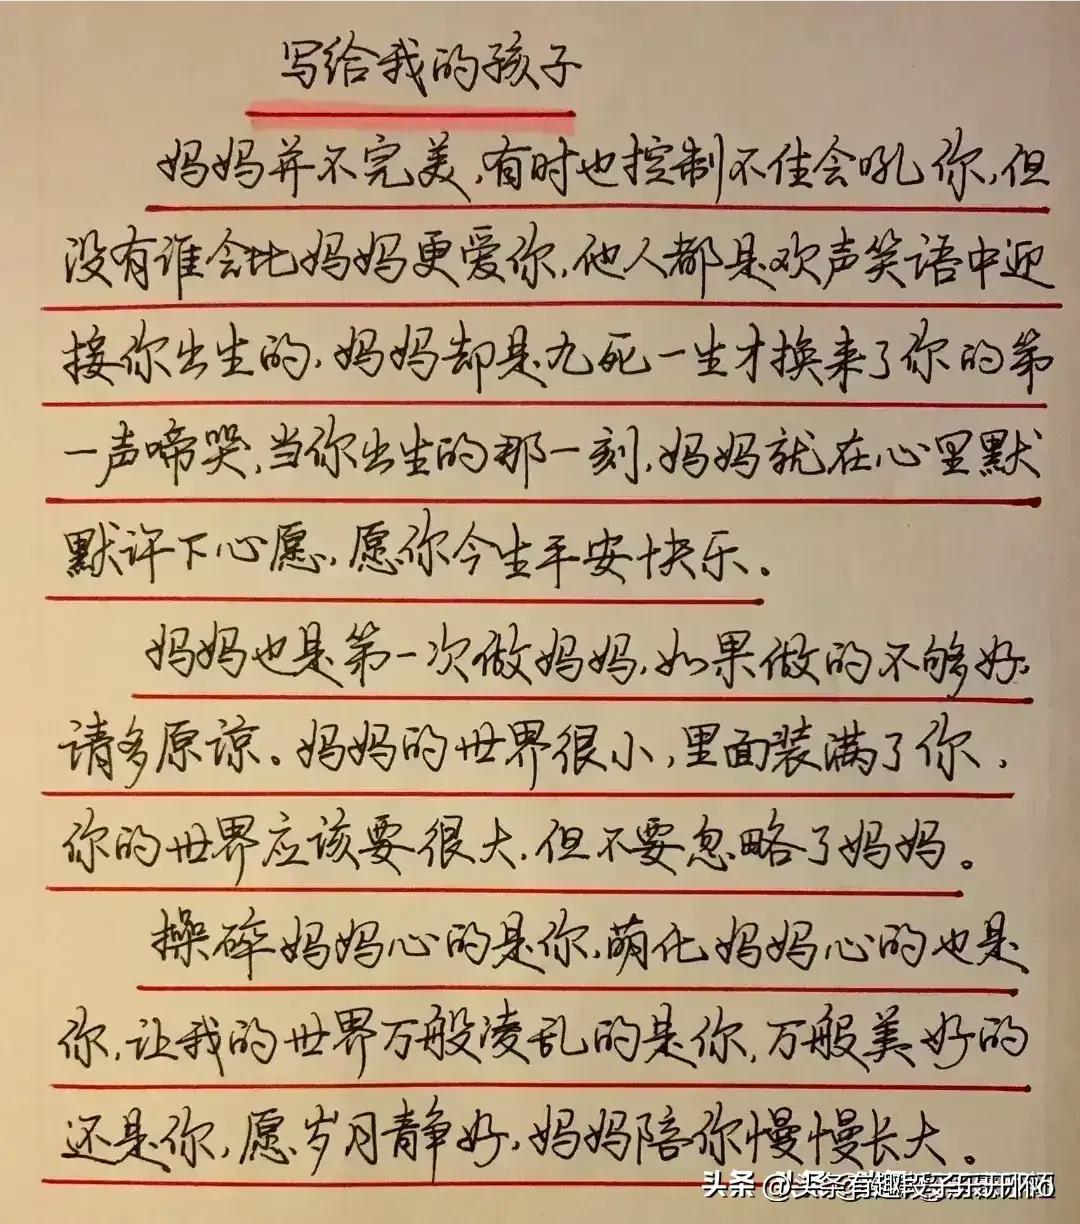 写给我的孩子
妈妈并不完美,有时也控制不住会吼你,但
没有谁会比妈妈更爱你,他人都是欢声笑语中迎
接你出生的,妈妈却是九死一生才换来了你的第
一声啼哭,当你出生的那一刻,妈妈就在心里默
默许下心愿,愿你今生平安快乐。
妈妈也是第一次做妈妈,如果做的不够好,
请多原谅。妈妈的世界很小,里面装满了你,
你的世界应该要很大,但不要忽略了妈妈。
操碎妈妈心的是你,萌化妈妈心的也是
你,让我的世界万般凌乱的是你,万般美好的
还是你,愿岁月静好,妈妈陪你慢慢长大。
头条 @头条有趣段子